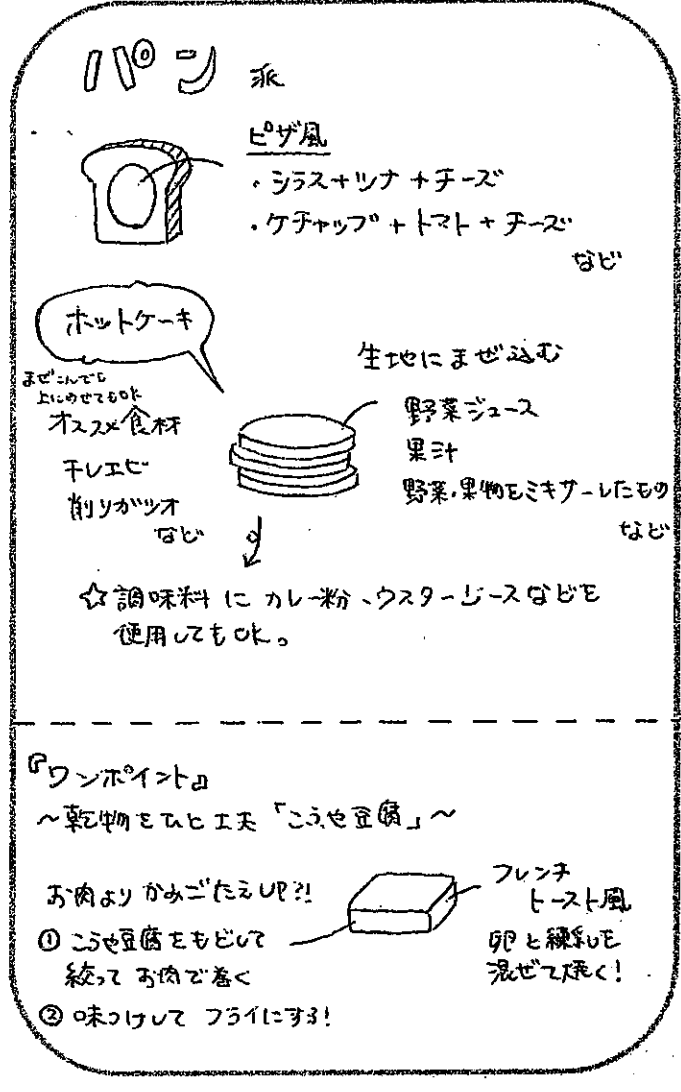 パン派
ピザ風
・シラス+ツナ+チーズ
・ケチャップ+トマト+チーズ
など
ホットケーキ
まぜこんでも
上にのせてもOK
オススメ食材
干しエビ
削りガツオ
など
生地にまぜ込む
野菜ジュース
果汁
野菜・果物をミキサーしたもの
など
☆調味料に カレー粉、ウスターソースなどを
使用してもOK。
『ワンポイント』
～乾物をひと工夫「こうや豆腐」～
お肉より かみごたえUP?!
① こうや豆腐をもどして
絞って お肉で巻く
② 味つけして フライにする!
フレンチ
トースト風
卵と練乳を
混ぜて焼く!